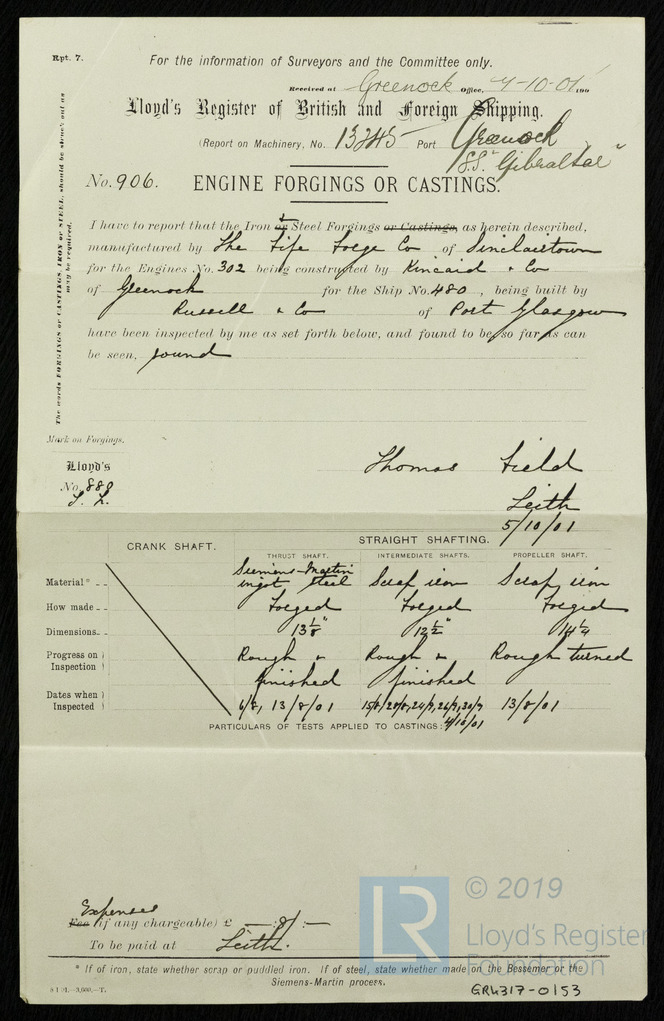 Rpt. 7.
For the information of Surveyors and the Committee only.
Received at Greenock Office, 7-10-01 190
Lloyd's Register of British and Foreign Shipping.
(Report on Machinery, No. 13245 Port Greenock
S.S. "Gibraltar"
No. 906. ENGINE FORGINGS OR CASTINGS.
The words FORGINGS or CASTINGS, IRON or STEEL, should be struck out as may be required.
I have to report that the Iron or & Steel Forgings or Castings, as herein described,
manufactured by The Fife Forge Co of Sinclairtown
for the Engines No. 302 being constructed by Kincaid & Co
of Greenock for the Ship No. 480, being built by
Russell & Co of Port Glasgow
have been inspected by me as set forth below, and found to be, so far as can
be seen, sound
Mark on Forgings.
Lloyd's
No. 880
Thomas Field
Leith
5/10/01
CRANK SHAFT. STRAIGHT SHAFTING.
THRUST SHAFT. INTERMEDIATE SHAFTS. PROPELLER SHAFT.
Material* Siemens-Martin ingot steel Scrap iron Scrap iron
How made Forged Forged Forged
Dimensions 13 1/8" 12 1/2" 14 1/4
Progress on Inspection Rough & finished Rough & finished Rough turned
Dates when Inspected 6/8, 13/8/01 15/8, 20/8, 24/9, 26/9, 30/9 4/10/01 13/8/01
PARTICULARS OF TESTS APPLIED TO CASTINGS:
Expenses
Fee (if any chargeable) £ —:8/:—
To be paid at Leith.
* If of iron, state whether scrap or puddled iron. If of steel, state whether made on the Bessemer or the
Siemens-Martin process.
GRK317-0153
LR
© 2019
Lloyd's Register
Foundation